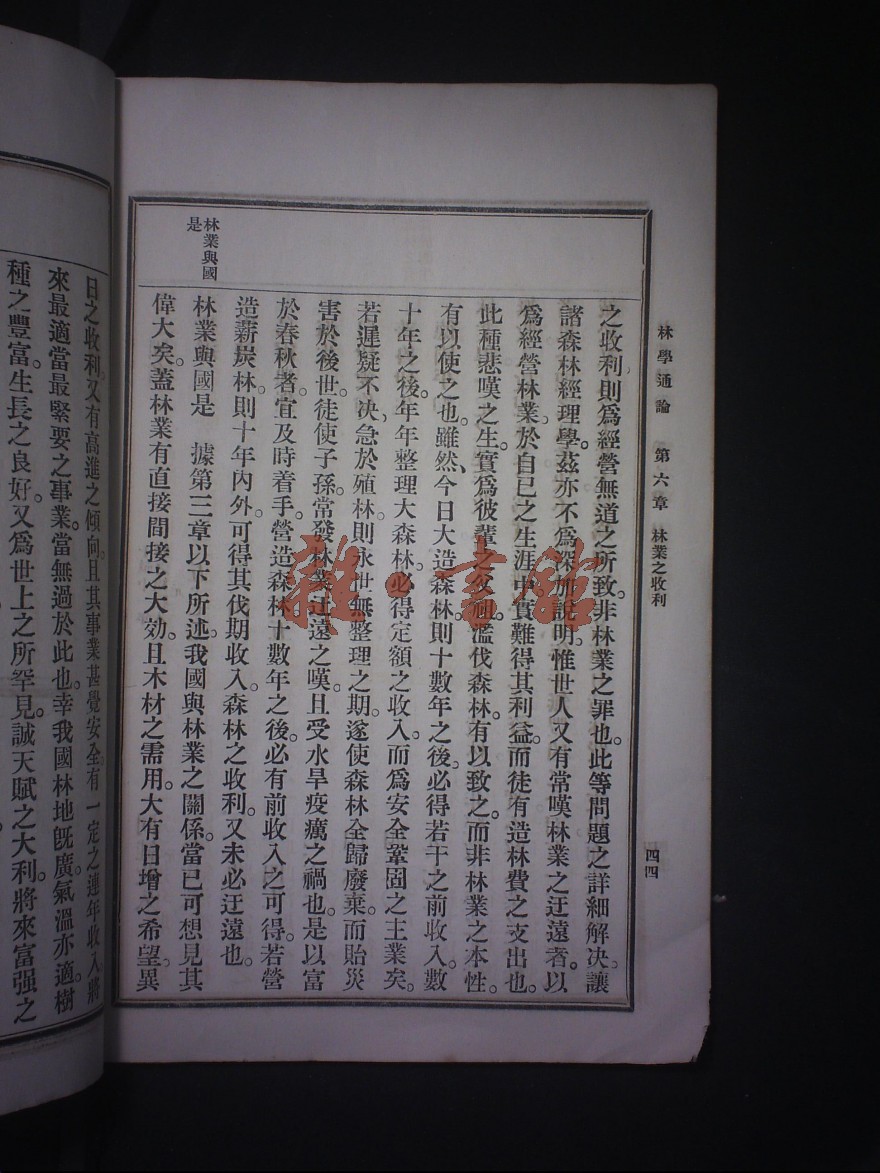 林學通論 第六章 林業之收利 四四
之收利則爲經營無道之所致。非林業之罪也。此等問題之詳細解决。讓
諸森林經理學。茲亦不爲深加說明。惟世人又有常嘆林業之迂遠者。以
爲經營林業。於自已之生涯中實難得其利益。而徒有造林費之支出也。
此種悲嘆之生。實爲彼輩之父祖濫伐森林。有以致之。而非林業之本性。
有以使之也。雖然、今日大造森林。則十數年之後。必得若干之前收入。數
十年之後。年年整理大森林。必得定額之收入。而爲安全鞏固之主業矣。
若遲疑不决、急於殖林。則永世無整理之期。遂使森林全歸廢棄。而貽災
害於後世。徒使子孫常發林業迂遠之嘆。且受水旱疫癘之禍也。是以富
於春秋者。宜及時着手。營造森林。十數年之後。必有前收入之可得。若營
造薪炭林。則十年內外。可得其伐期收入。森林之收利。又未必迂遠也。
林業與國是
林業與國是 據第三章以下所述。我國與林業之關係。當已可想見其
偉大矣。蓋林業有直接間接之大効。且木材之需用。大有日增之希望。異
日之收利。又有高進之傾向。且其事業甚覺安全。有一定之連年收入。將
來最適當最緊要之事業。當無過於此也。幸我國林地旣廣。氣溫亦適。樹
種之豐富。生長之良好。又爲世上之所罕見。誠天賦之大利。將來富强之
雜·書館